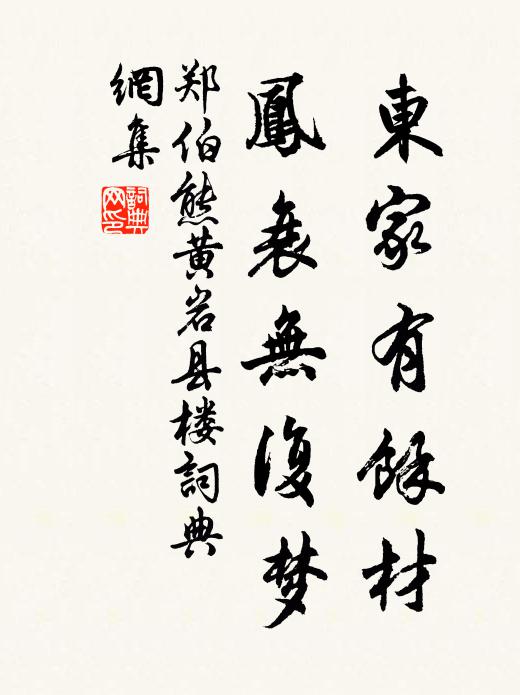 東家有餘材
鳳衰無復梦
郑伯熊黄岩县楼詞典
網集
詞典网印